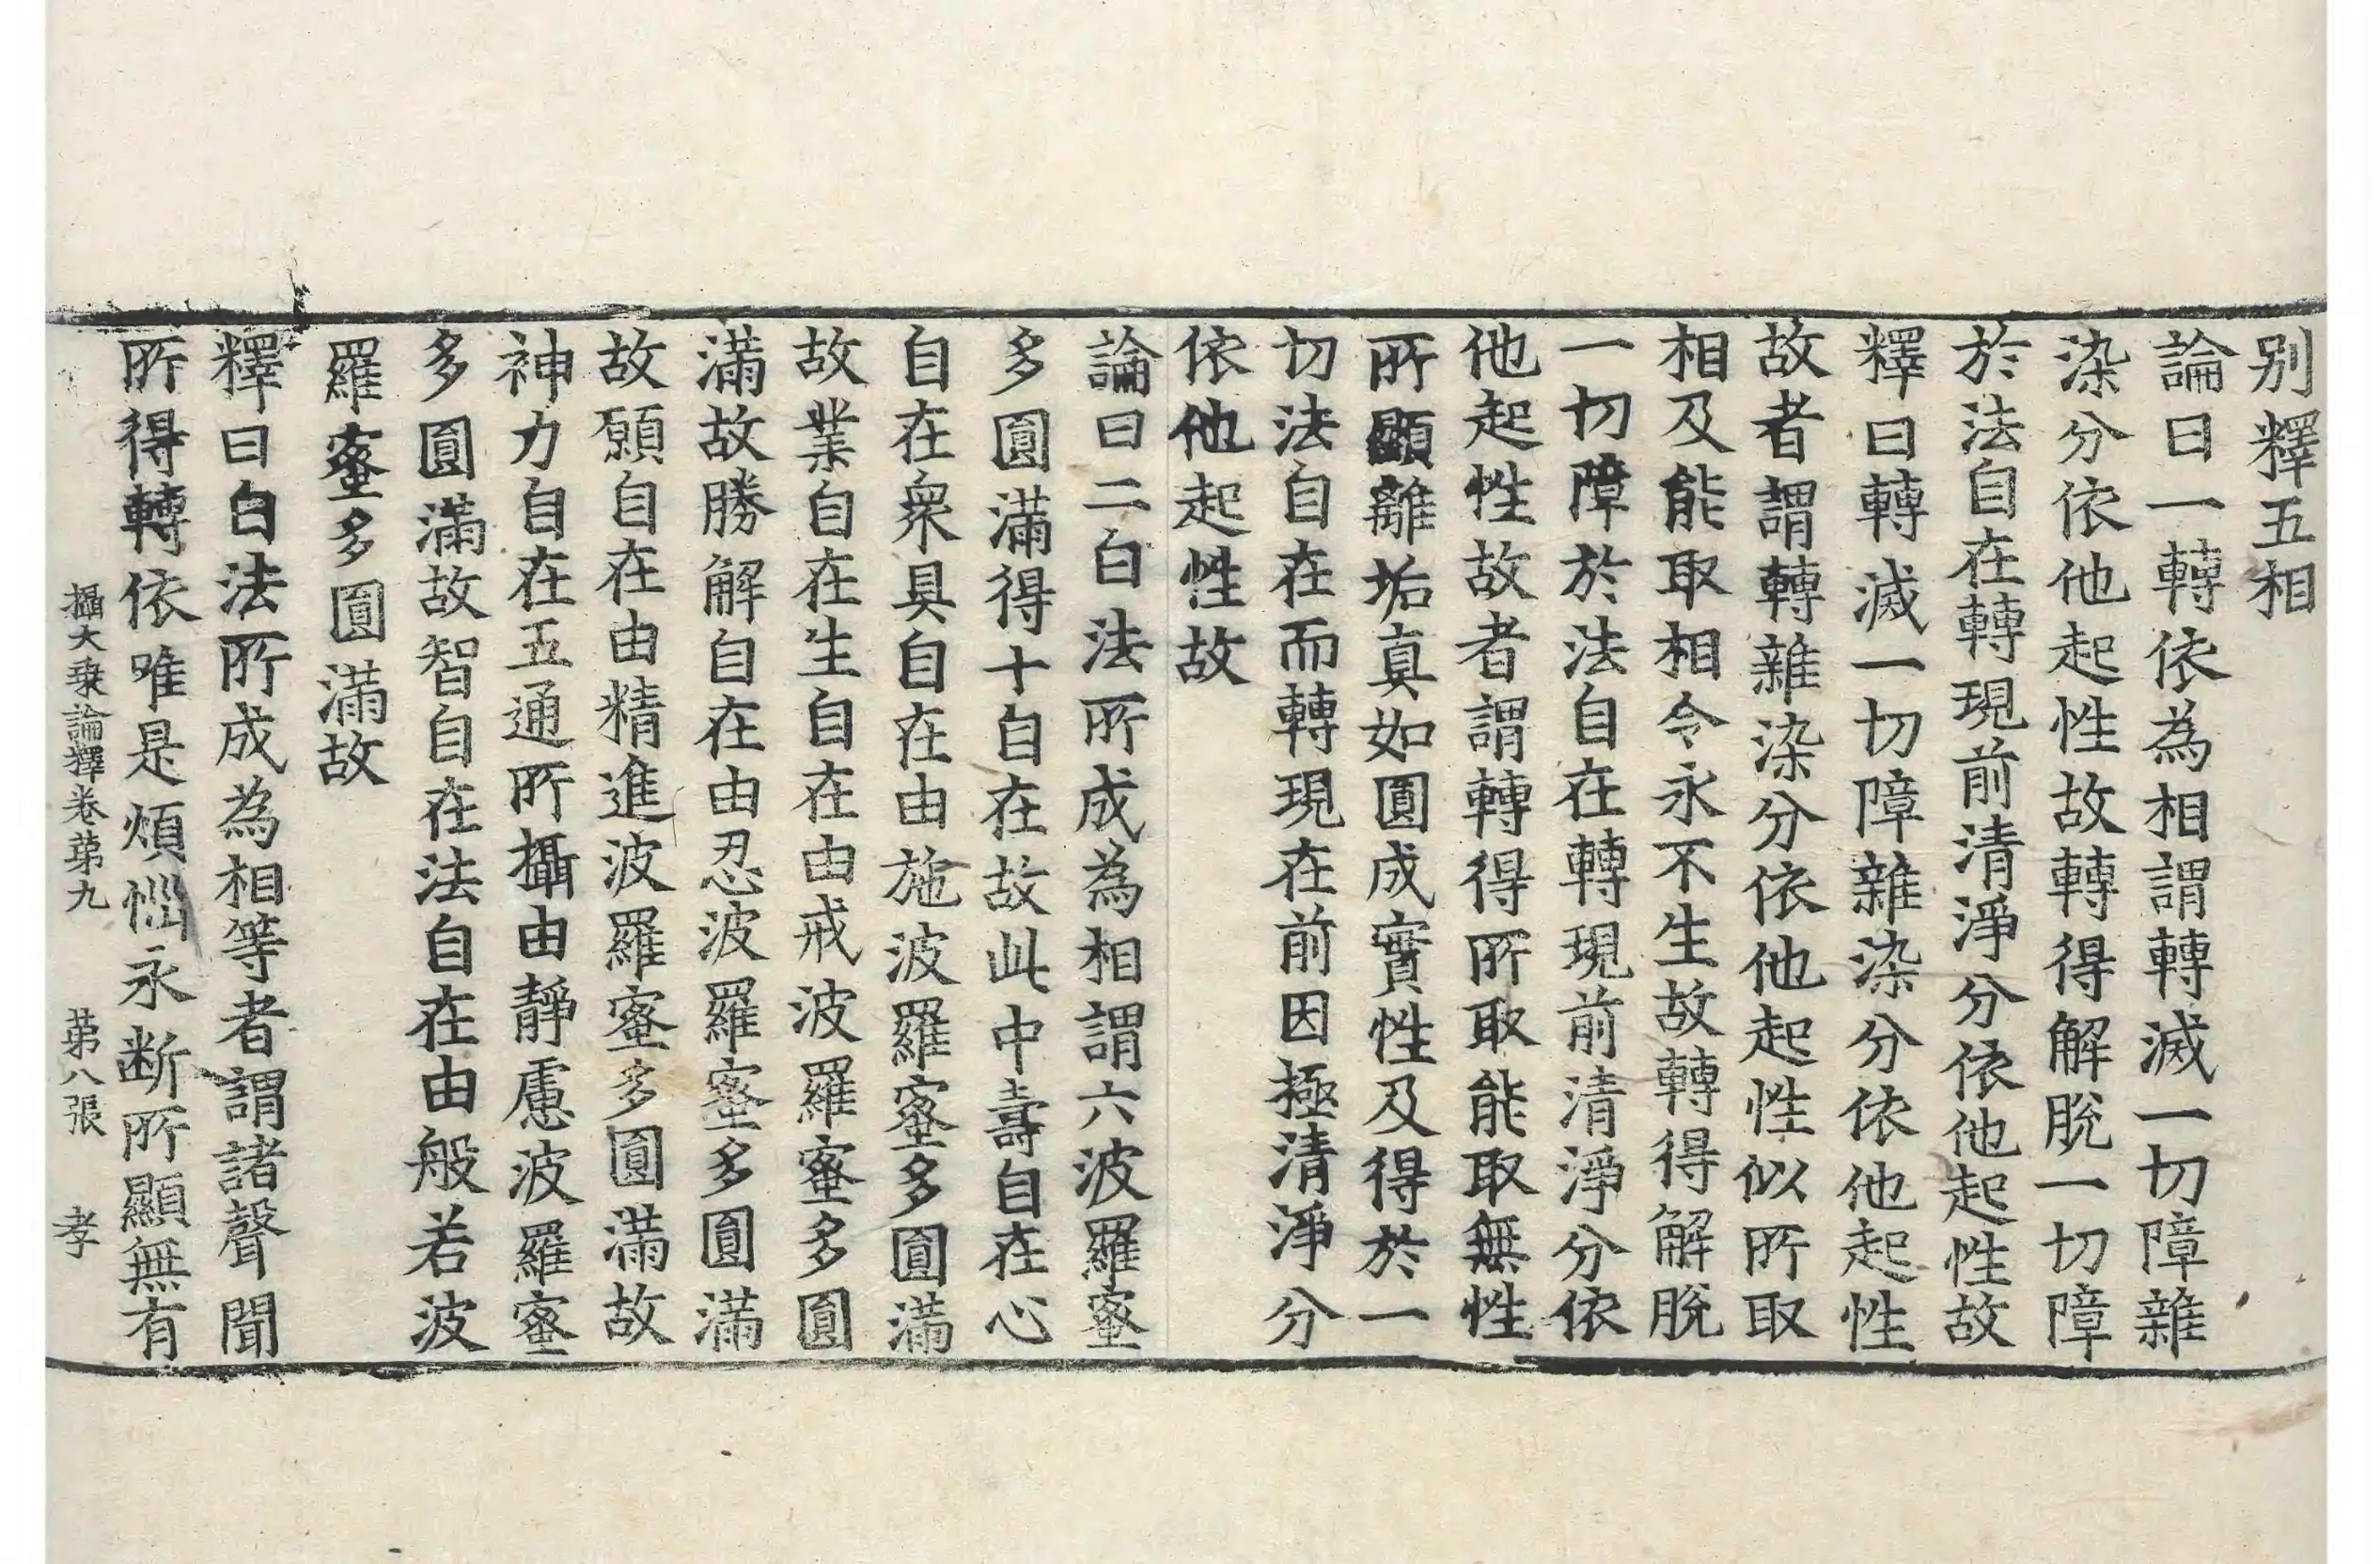 别釋五相
論曰一轉依為相謂轉滅一切障雜
染分依他起性故轉得解脫一切障
於法自在轉現前清淨分依他起性故
釋曰轉滅一切障雜染分依他起性
故者謂轉雜染分依他起性似所取
相及能取相令永不生故轉得解脫
一切障於法自在轉現前清淨分依
他起性故者謂轉得所取能取無性
所顯離垢真如圓成實性及得於一
切法自在而轉現在前因極清淨分
依他起性故
論曰二白法所成為相謂六波羅蜜
多圓滿得十自在故此中壽自在心
自在衆具自在由施波羅蜜多圓滿
故業自在生自在由戒波羅蜜多圓
滿故勝解自在由忍波羅蜜多圓滿
故願自在由精進波羅蜜多圓滿故
神力自在五通所攝由靜慮波羅蜜
多圓滿故智自在法自在由般若波
羅蜜多圓滿故
釋曰白法所成為相等者謂諸聲聞
所得轉依唯是煩惱永断所顯無有
攝大乘論釋卷第九 第八張 孝